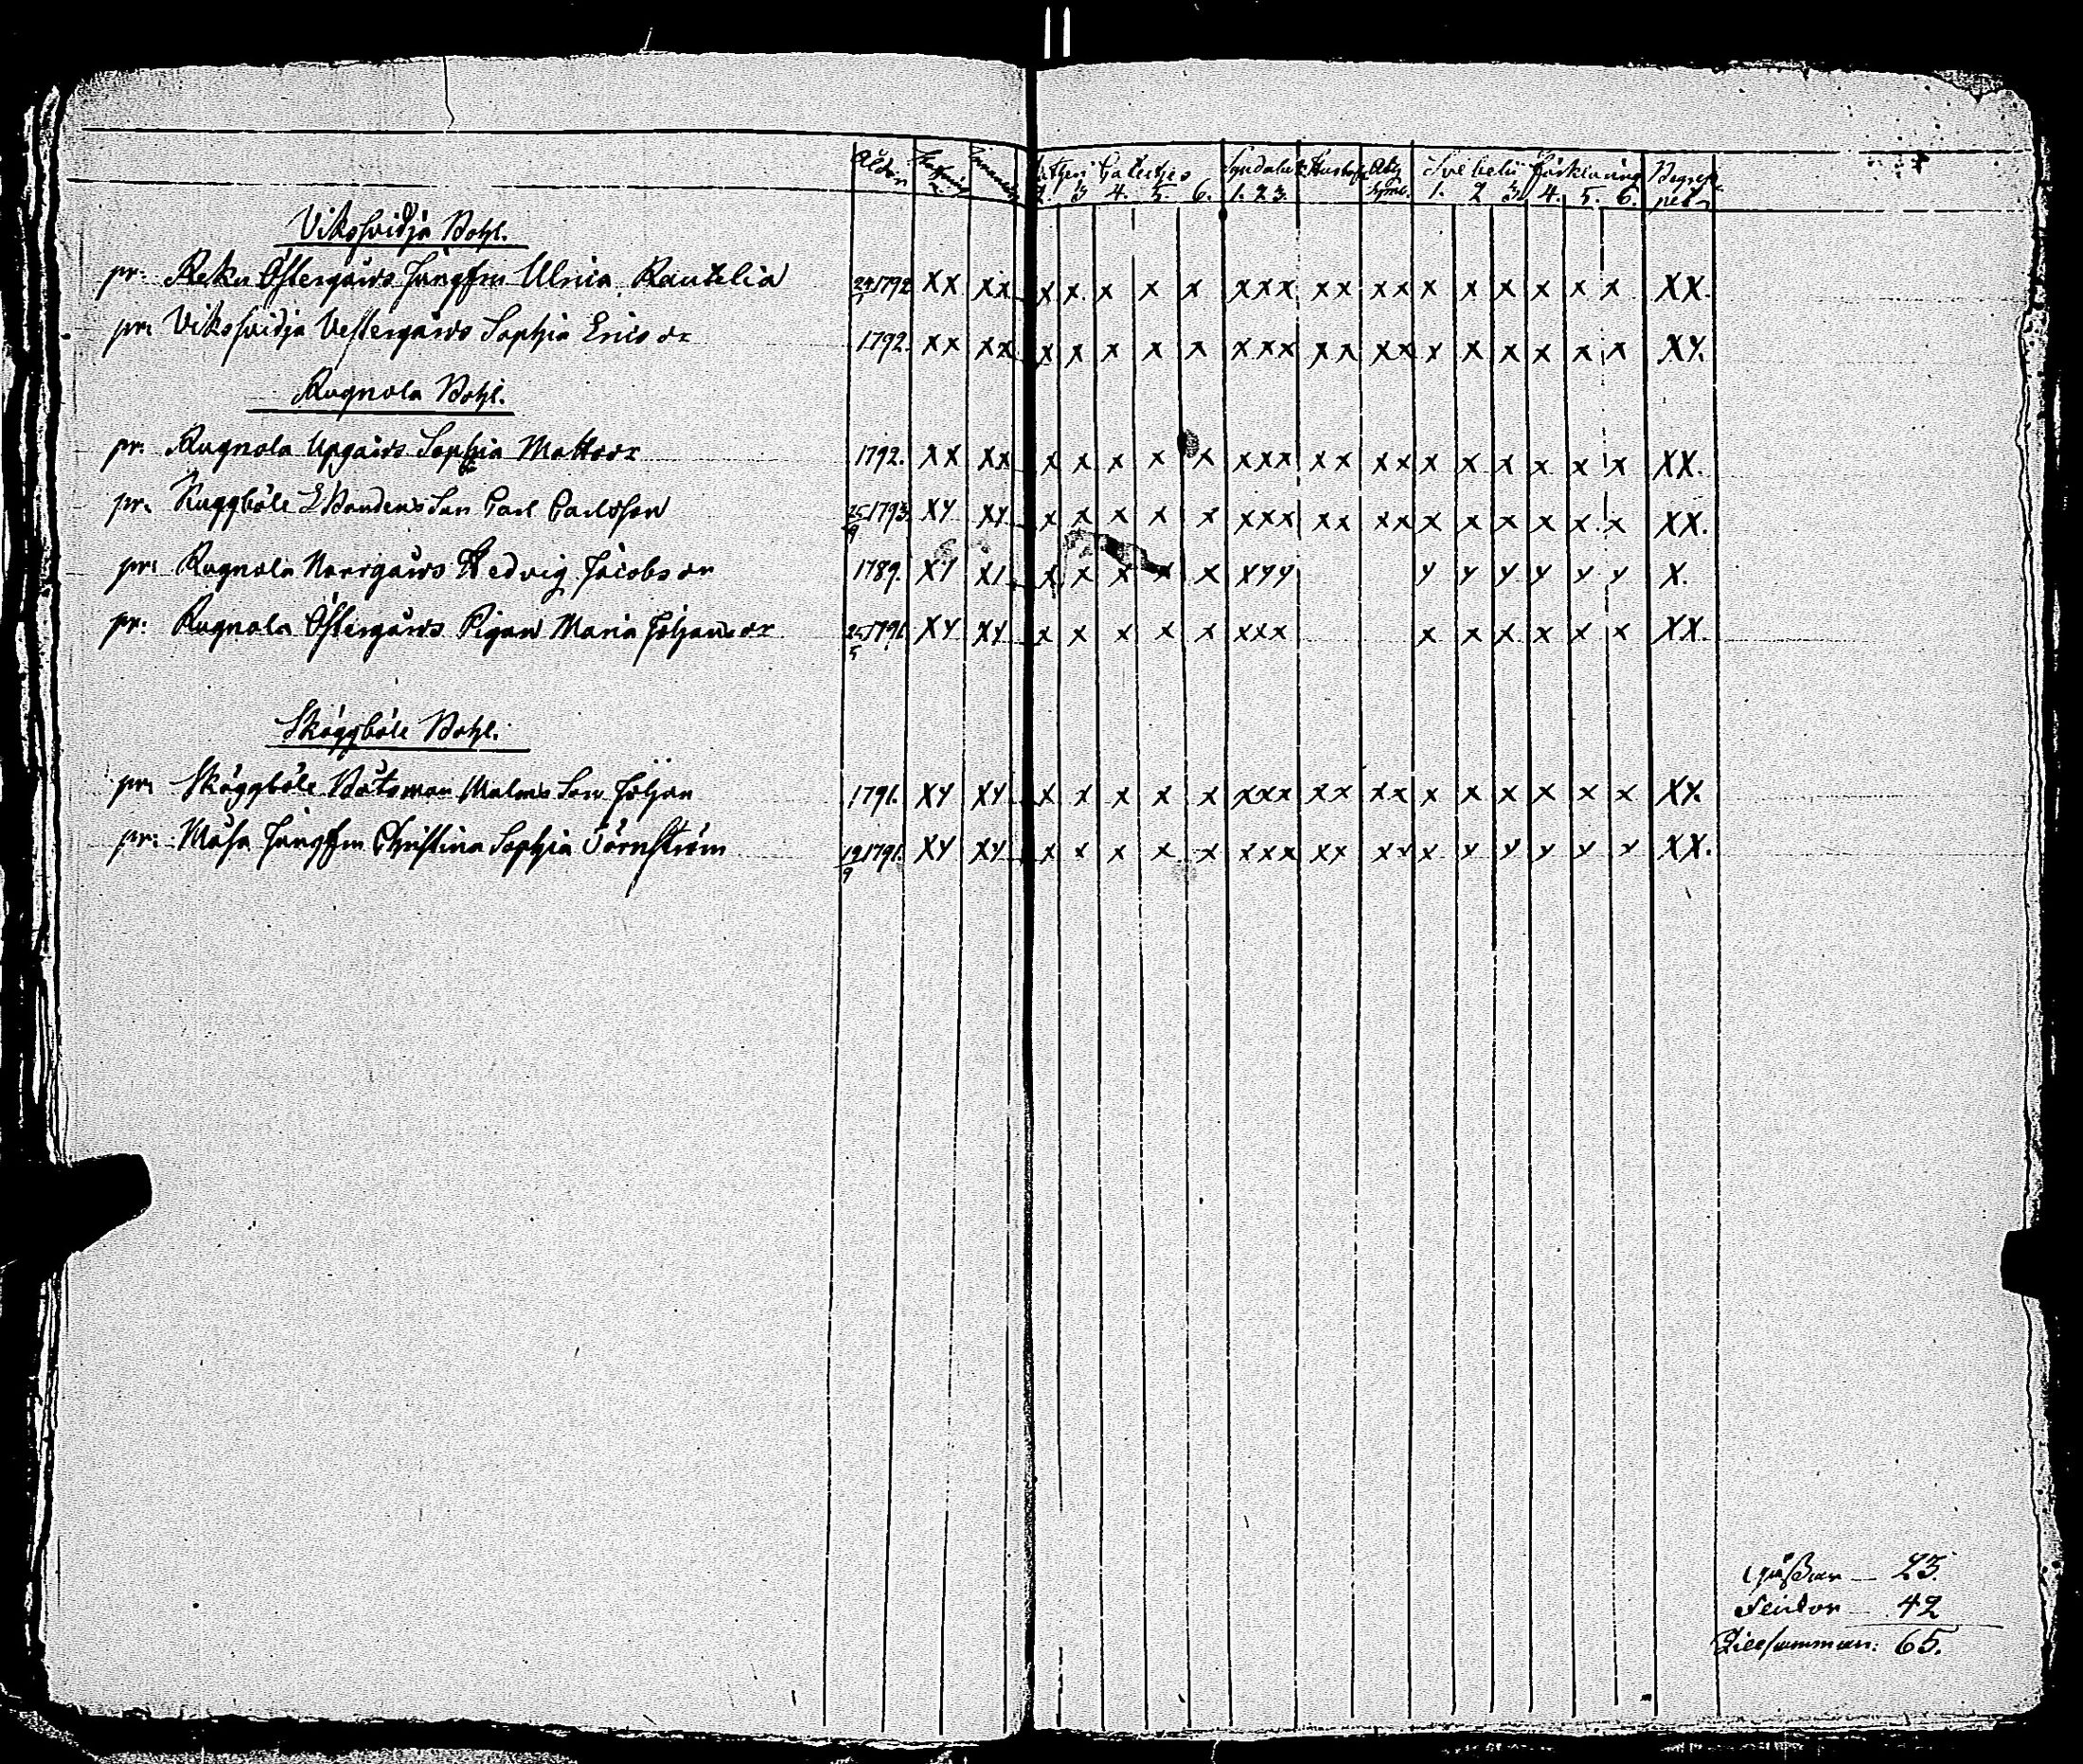 Åldren Innan Lutheri Catechés Syndabek: Hustafla Ath: Svebelii Förklaring Begrep
2. 3 4. 5. 6. 1. 2 3. Symb. 1. 2 3. 4. 5. 6. pet
Viksvidja Bohl.
pr: Reku Östergårds Jungfrun Ulrica Rautelia 24/1 1792 XX XX x x x x x xxx xx xx x x x x x x XX.
pr: Viksvidja Vestergårds Sophia Ericsdr 1792. XX XX x x x x x xxx xx xx x x x x x x XX.
Rugnola Bohl.
pr. Rugnola Upgårds Sophia Mattsdr 1792. XX XX x x x x x xxx xx xx x x x x x x XX.
pr. Kuggböle Son Carl Carlsson 25/9 1793 XX XX x x x x x xxx xx xx x x x x x x XX.
pr: Rugnola Norrgårds Hedvig Jacobsdr 1789. XX XX x x x x x xxx x x x x x x X.
pr: Rugnola Östergårds Pigan Maria Johansdr 25/5 1791. XX XX x x x x x xxx x x x x x x XX.
Skäggböle Bohl.
pr: Skäggböle Båtsman Malms Son Johan 1791. XX XX x x x x x xxx xx xx x x x x x x XX.
pr: Måsa Jungfrun Christina Sophia Törnström 19/9 1791. XX XX x x x x x xxx xx xx x x x x x x XX.
Gåßar — 23.
Flickor — 42
Tillsamman: 65.